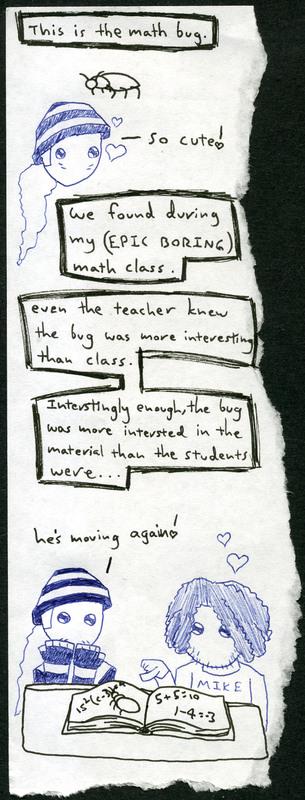 This is the math bug.
— so cute!
we found during
my (EPIC BORING)
math class.
even the teacher knew
the bug was more interesting
than class.
Interstingly enough, the bug
was more intersted in the
material than the students
were...
he's moving again!
MIKE
5+5=10
1-4=-3